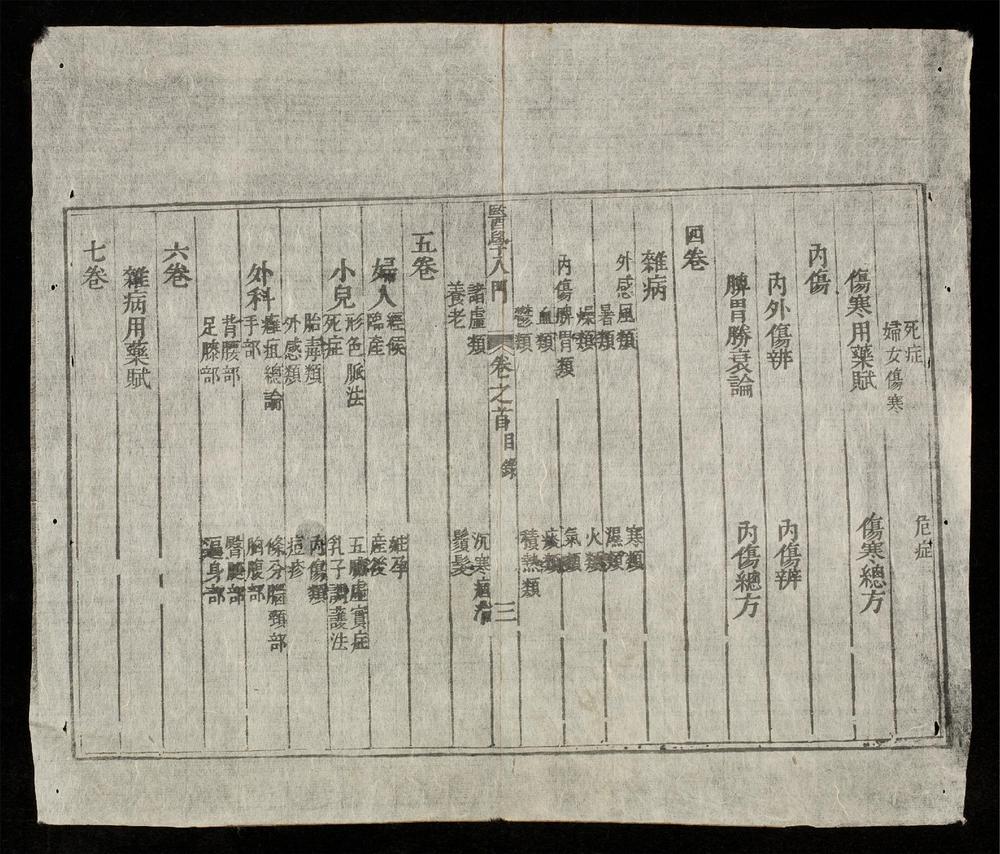 死症 危症
婦女傷寒
傷寒用藥賦 傷寒總方
內傷
內外傷辨 內傷辨
脾胃勝衰論 內傷總方
四卷
雜病
外感風類 寒類
暑類 濕類
燥類 火類
內傷脾胃類 氣類
血類 痰類
鬱類 積熱類
醫學入門 卷之首目錄 三
諸虛類 沉寒痼冷
養老 鬚髮
五卷
婦人 經候 姙孕
臨產 產後
小兒 形色脈法 五臟虛實症
死症 乳子調護法
胎毒類 內傷類
外感類 痘疹
外科 癰疽總論 條分腦頸部
手部 胸腹部
背腰部 臀腿部
足膝部 遍身部
六卷
雜病用藥賦
七卷